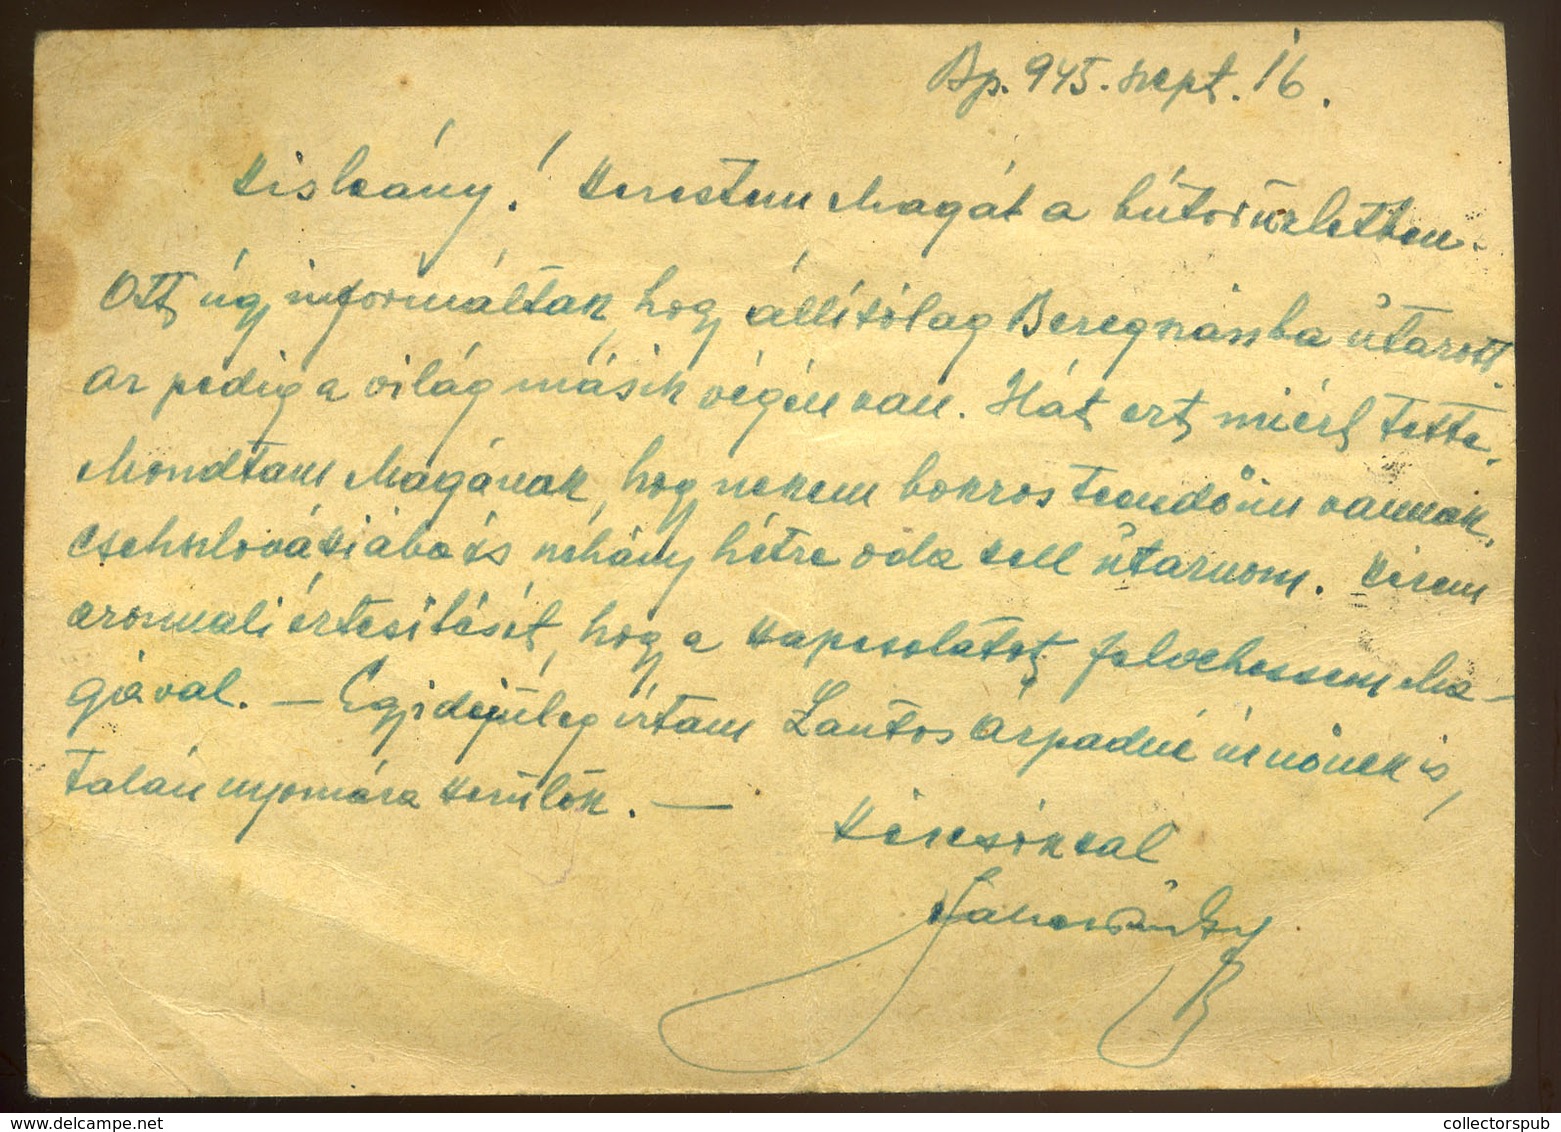 Bp. 945. szept. 16.
Kisleány! Kerestem Magát a bútorüzletben.
Ott úgy informáltak, hogy állítólag Beregszászba utazott.
Az pedig a világ másik végén van. Hát ezt miért tette.
Mondtam Magának, hogy nekem bokros teendőim vannak
Csehszlovákiába és néhány hétre oda kell utaznom. Kérem
azonnali értesítését, hogy a kapcsolatot felvehessem Ma-
gával. — Egyidejűleg írtam Lantos Árpádné úrnőnek is,
talán nyomára kerülök. —
Kézcsókkal
collectorspub